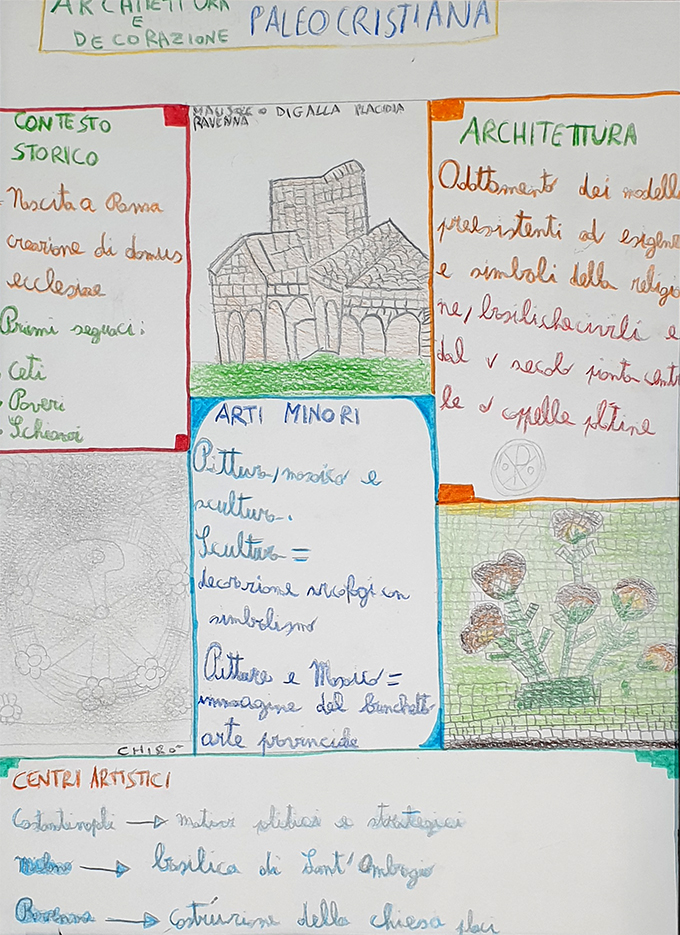 ARCHITETTURA
E
DECORAZIONE
PALEOCRISTIANA
CONTESTO
STORICO
- Nascita a Roma
creazione di domus
ecclesiae
Primi seguaci:
Ceti
Poveri
Schiavi
DI GALLA PLACIDIA
RAVENNA
ARCHITETTURA
Adattamento dei modelli
preesistenti ad esigenze
e simboli della religio
ne, basiliche civili e
dal V secolo pianta centra
le o cappelle
ARTI MINORI
Pittura, mosaico e
scultura.
Scultura =
decorazione con
simbolismo
Pittura e Mosaico =
immagine del banchetto
arte provinciale
CHIRÒ
CENTRI ARTISTICI
Costantinopoli → motivi politici e strategici
Milano → basilica di Sant'Ambrogio
→ costruzione della chiesa